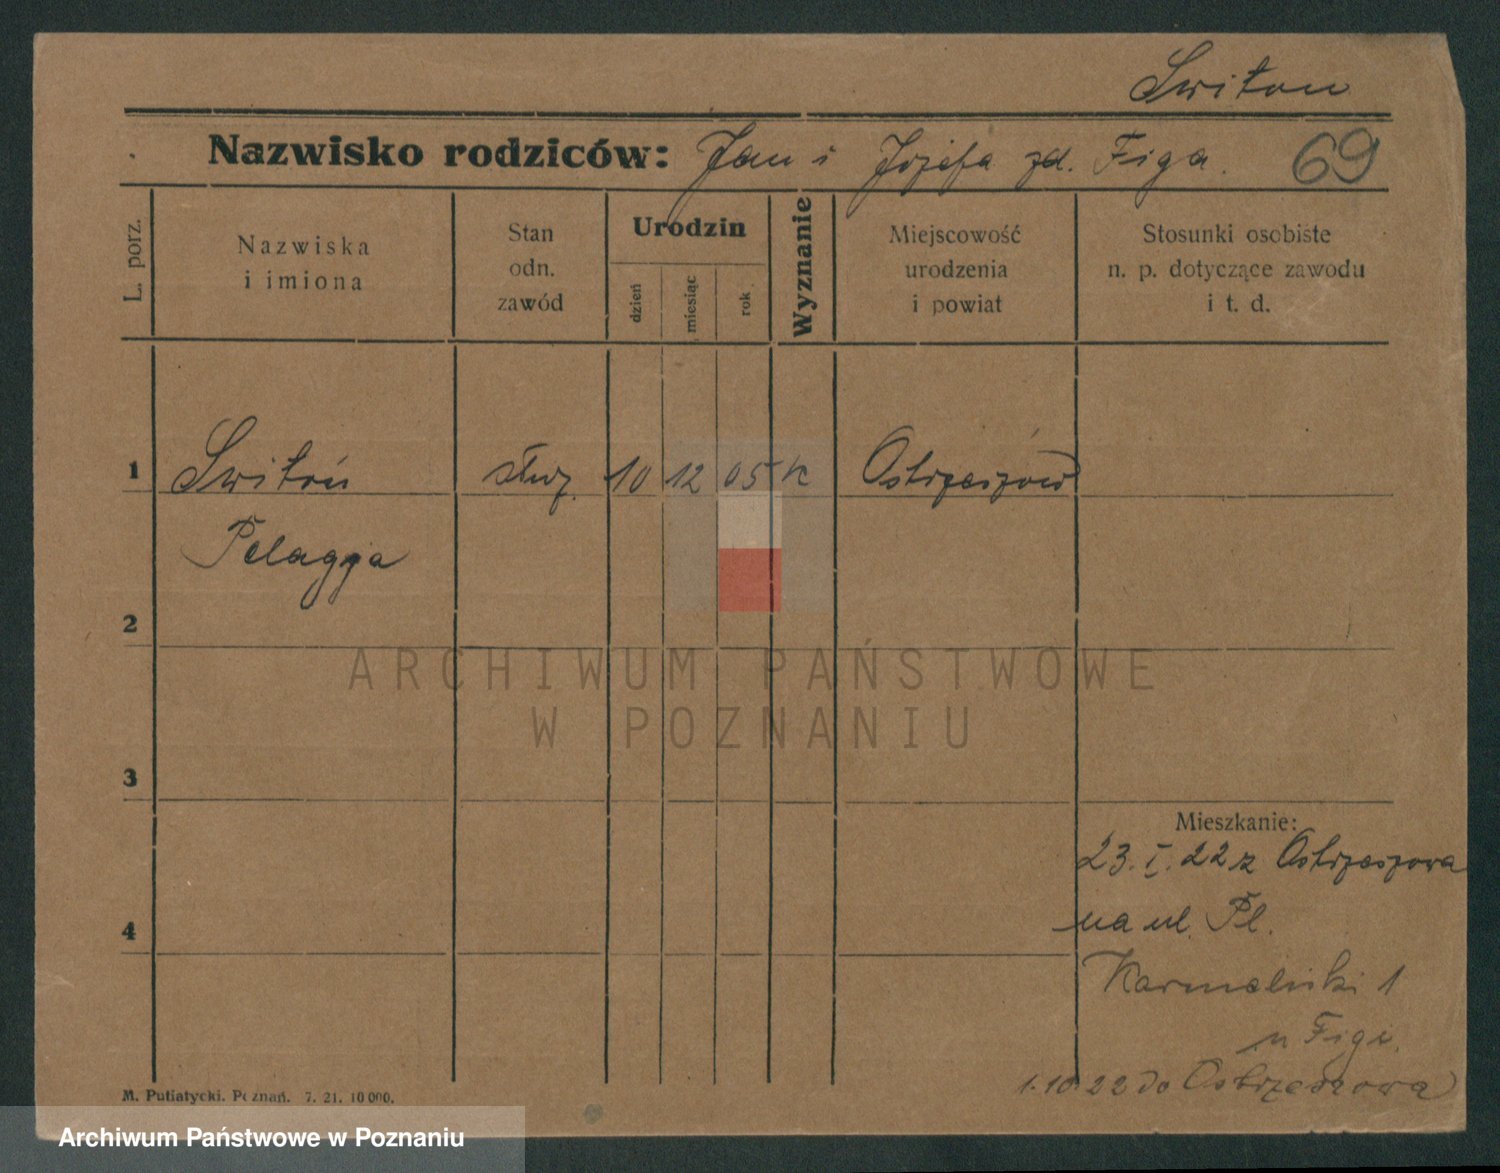 Switon
Nazwisko rodziców: Jan i Józefa zd. Figa. 69
L. porz.
Nazwiska
i imiona
Stan
odn.
zawód
Urodzin
dzień
miesiąc
rok
Wyznanie
Miejscowość
urodzenia
i powiat
Stosunki osobiste
n. p. dotyczące zawodu
i t. d.
1 Switoń służ. 10 12 05 K Ostrzeszów
Pelagja
2
ARCHIWUM PAŃSTWOWE
W POZNANIU
3
Mieszkanie:
23. I. 22 z Ostrzeszowa
4 na ul. Pl.
Karmelicki 1
u Figi.
1.10.22 do Ostrzeszowa
M. Putiatycki. Poznań. 7. 21. 10 000.
Archiwum Państwowe w Poznaniu